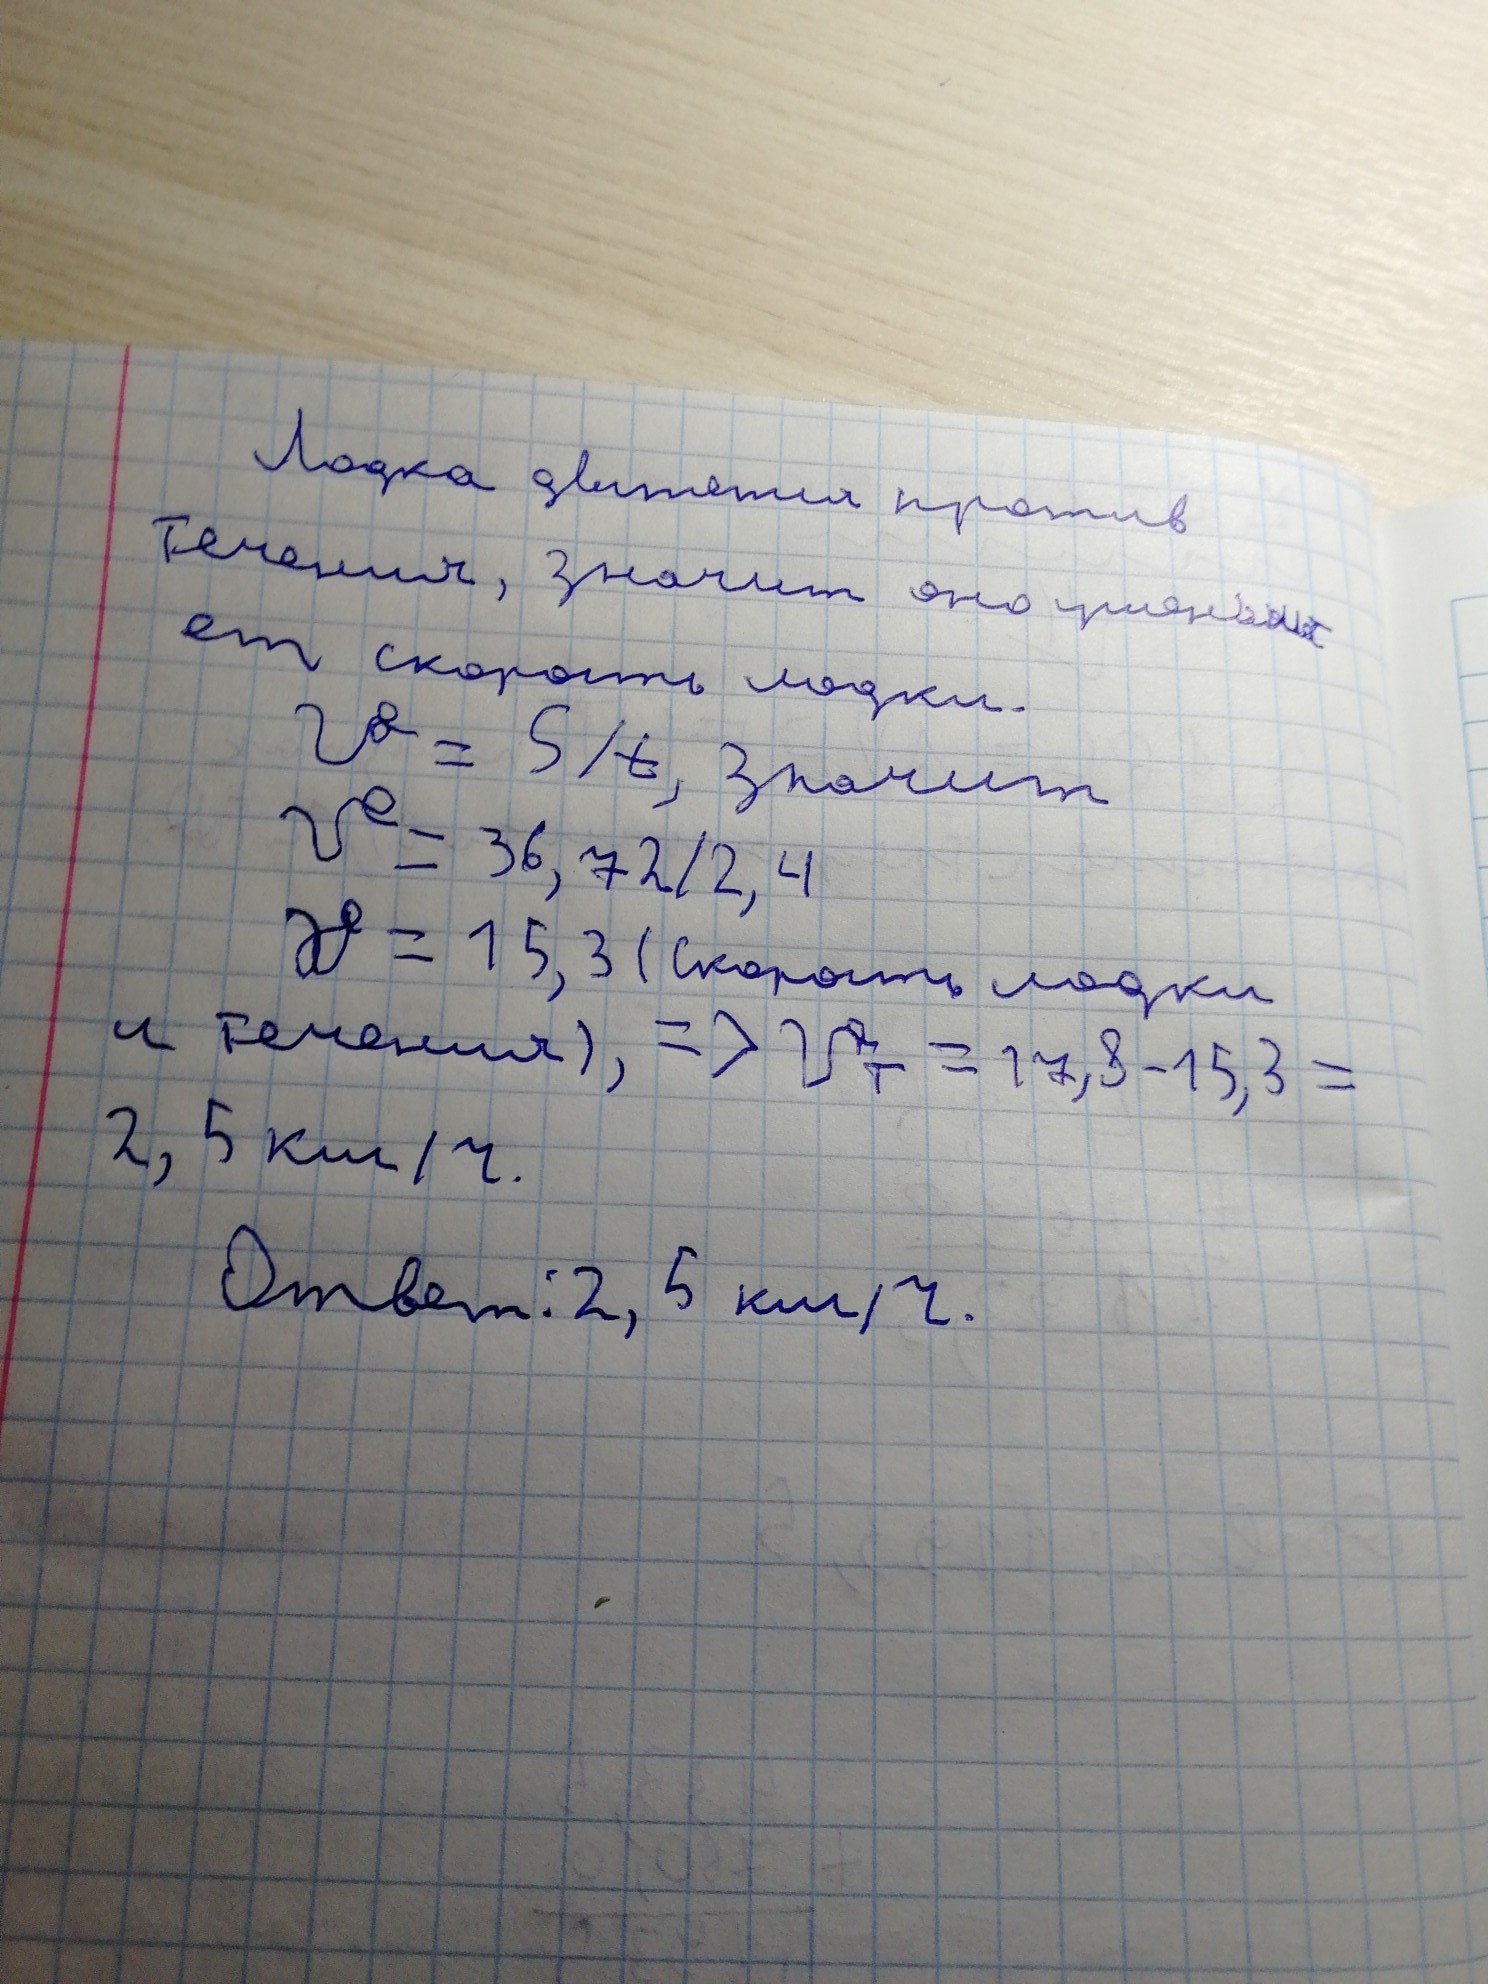 Лодка движется против
течения, значит оно уменьша
ет скорость лодки.
V = S/t, значит
V = 36,72/2,4
V = 15,3 (скорость лодки
и течения), => Vт = 17,8-15,3=
2,5 км/ч.
Ответ: 2,5 км/ч.